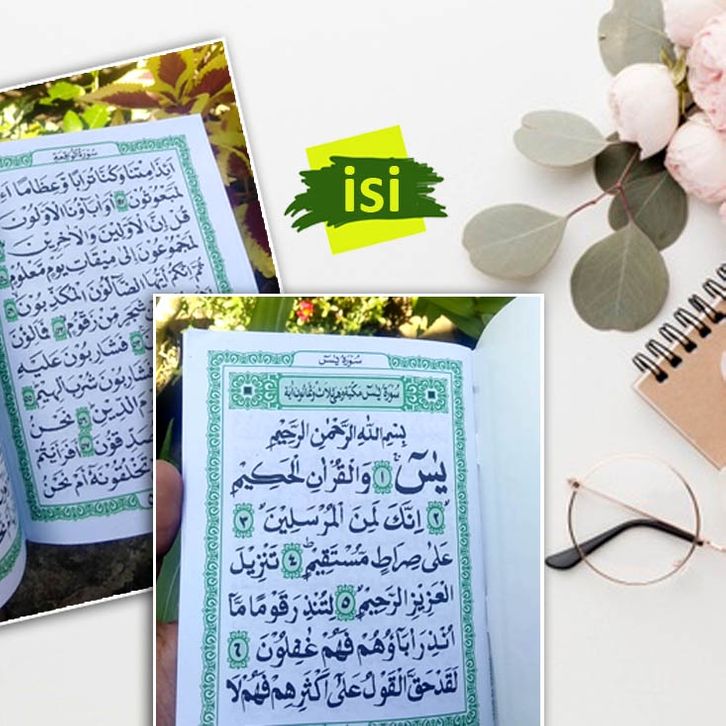 isi
سورة الواقعة
اَئِذَا مِتْنَا وَكُنَّا تُرَابًا وَّعِظَامًا
لَمَبْعُوْثُوْنَ اَوَاٰبَاۤؤُنَا الْاَوَّلُوْنَ
قُلْ اِنَّ الْاَوَّلِيْنَ وَالْاٰخِرِيْنَ
لَمَجْمُوْعُوْنَ اِلٰى مِيْقَاتِ يَوْمٍ مَّعْلُوْمٍ
ثُمَّ اِنَّكُمْ اَيُّهَا الضَّاۤلُّوْنَ الْمُكَذِّبُوْنَ
شَجَرٍ مِّنْ زَقُّوْمٍ
فَشَارِبُوْنَ عَلَيْهِ
فَشَارِبُوْنَ شُرْبَ الْهِيْمِ
الدِّيْنِ نَحْنُ
اَفَرَاَيْتُمْ
تَخْلُقُوْنَهٗ اَمْ نَحْنُ
سورة يس
سورة يس مكية وهي ثلاث وثمانون اية
بِسْمِ اللهِ الرَّحْمٰنِ الرَّحِيْمِ
يٰسۤ ١ وَالْقُرْاٰنِ الْحَكِيْمِ
٢ اِنَّكَ لَمِنَ الْمُرْسَلِيْنَ ٣
عَلٰى صِرَاطٍ مُّسْتَقِيْمٍ ٤ تَنْزِيْلَ
الْعَزِيْزِ الرَّحِيْمِ ٥ لِتُنْذِرَ قَوْمًا مَّاۤ
اُنْذِرَ اٰبَاۤؤُهُمْ فَهُمْ غٰفِلُوْنَ ٦
لَقَدْ حَقَّ الْقَوْلُ عَلٰۤى اَكْثَرِهِمْ فَهُمْ لَا